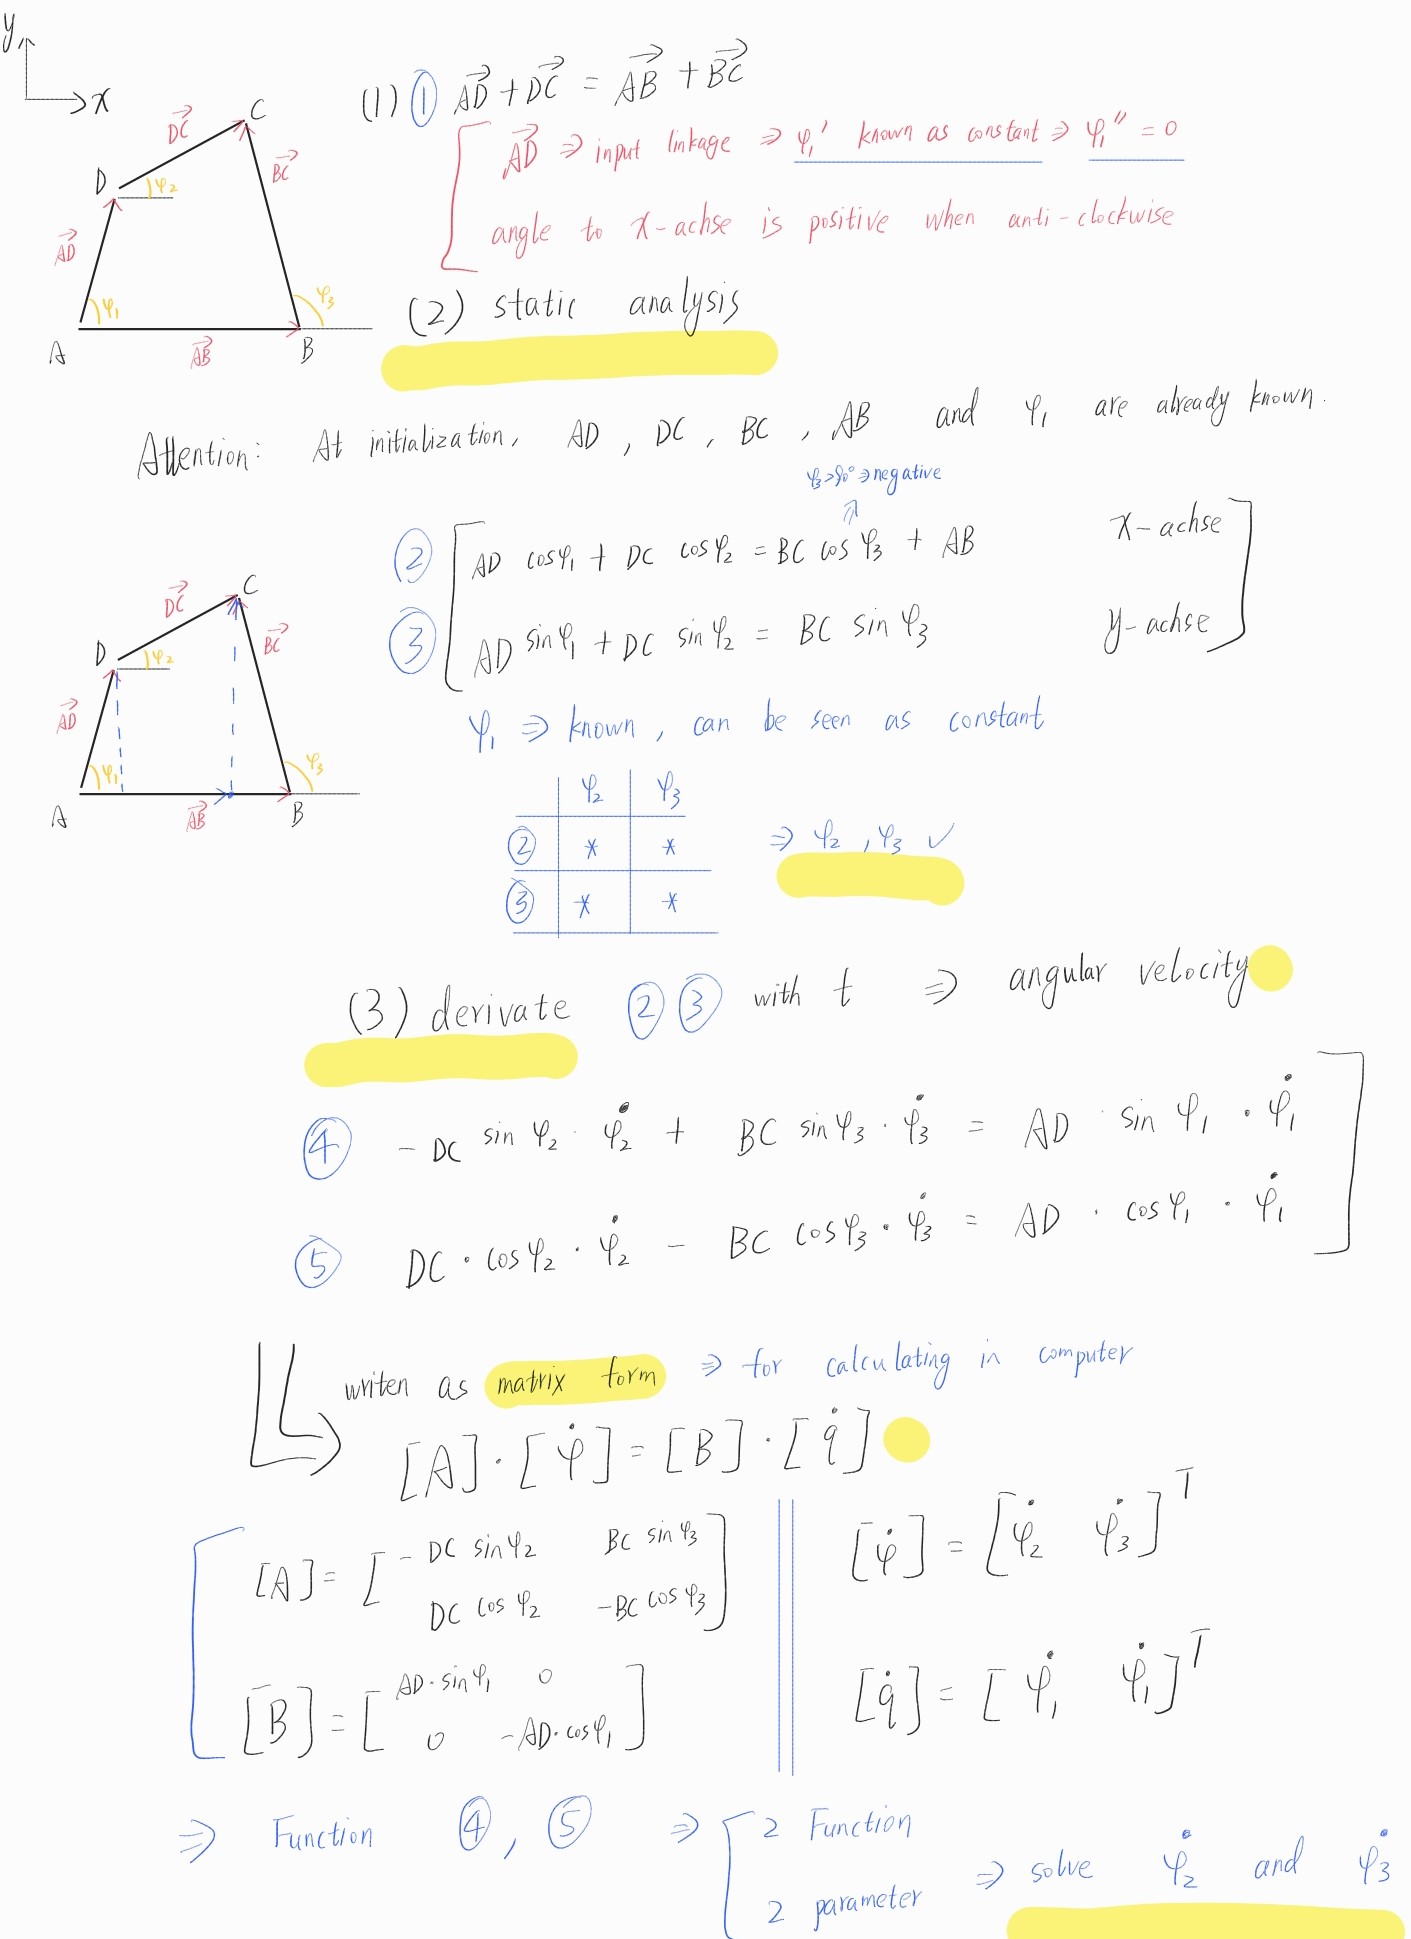 y
x
(1) ① AD + DC = AB + BC
AD ⇒ input linkage ⇒ φ₁' known as constant ⇒ φ₁'' = 0
angle to x-achse is positive when anti-clockwise
C
DC
BC
D
φ₂
AD
φ₁
φ₃
A
AB
B
(2) static analysis
Attention: At initialization, AD, DC, BC, AB and φ₁ are already known.
φ₃>90° ⇒ negative
② AD cosφ₁ + DC cosφ₂ = BC cosφ₃ + AB x-achse
③ AD sinφ₁ + DC sinφ₂ = BC sinφ₃ y-achse
C
DC
BC
D
φ₂
AD
φ₁
φ₃
A
AB
B
φ₁ ⇒ known, can be seen as constant
φ₂ φ₃
② * *
③ * *
⇒ φ₂, φ₃ ✓
(3) derivate ② ③ with t ⇒ angular velocity
④ - DC sinφ₂ · φ̇₂ + BC sinφ₃ · φ̇₃ = AD · sinφ₁ · φ̇₁
⑤ DC · cosφ₂ · φ̇₂ - BC cosφ₃ · φ̇₃ = AD · cosφ₁ · φ̇₁
writen as matrix form ⇒ for calculating in computer
[A] · [φ̇] = [B] · [q̇]
[A] = [ - DC sinφ₂ BC sinφ₃
DC cosφ₂ -BC cosφ₃ ]
[B] = [ AD·sinφ₁ 0
0 -AD·cosφ₁ ]
[φ̇] = [φ̇₂ φ̇₃]ᵀ
[q̇] = [φ̇₁ φ̇₁]ᵀ
⇒ Function ④, ⑤ ⇒ 2 Function
2 parameter ⇒ solve φ̇₂ and φ̇₃